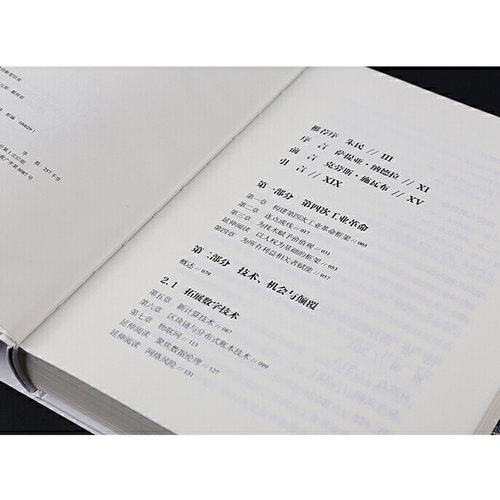 字 数 257千字
推荐序 朱民 // III
序 言 萨提亚·纳德拉 // XI
前 言 克劳斯·施瓦布 // XV
引 言 // XIX
第一部分 第四次工业革命
第一章 构建第四次工业革命框架 // 003
第二章 连点成线 // 017
第三章 为技术赋予价值观 // 031
延伸阅读 以人权为基础的框架 // 053
第四章 为所有利益相关者赋能 // 057
第二部分 技术、机会与颠覆
概述 // 079
2.1 拓展数字技术
第五章 新计算技术 // 087
第六章 区块链与分布式账本技术 // 099
第七章 物联网 // 113
延伸阅读 聚焦数据伦理 // 127
延伸阅读 网络风险 // 131